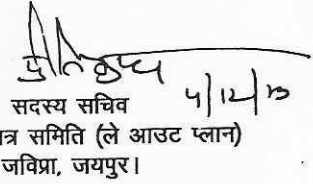 4/12/13
सदस्य सचिव
त्र समिति (ले आउट प्लान)
जविप्रा, जयपुर।